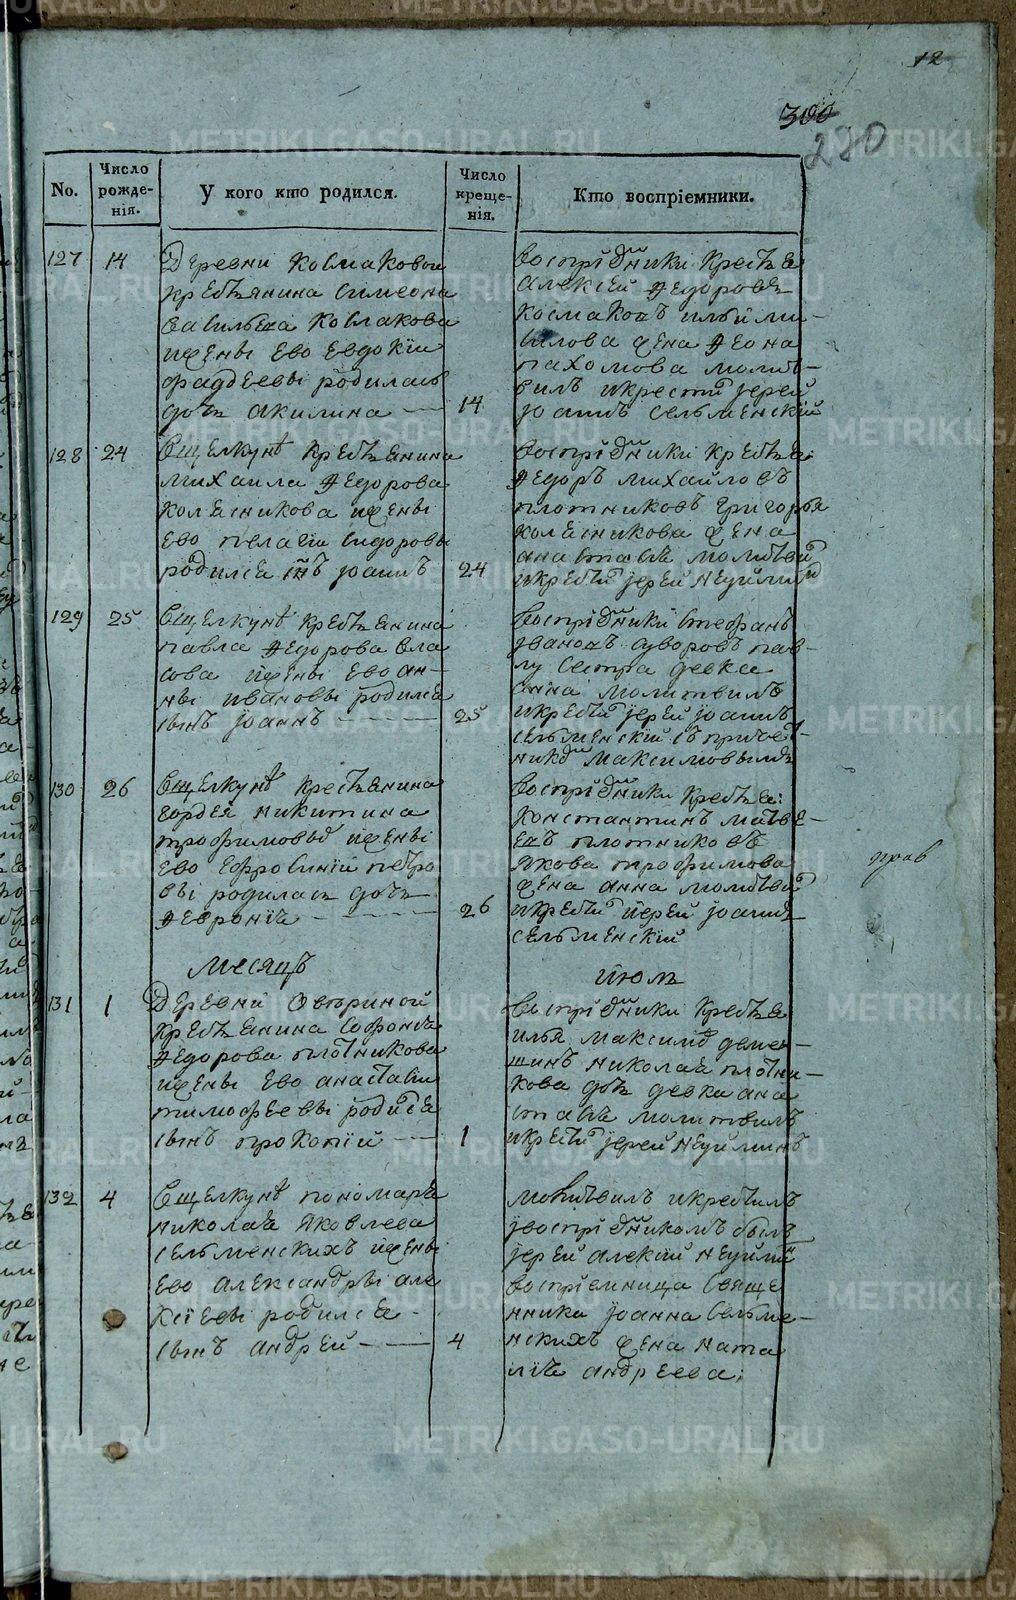 12
300
280
No.
Число рожде-нія.
У кого кто родился.
Число креще-нія.
Кто воспріемники.
127 14
Деревни Космаковои
крестьянина Симеона
Васильева Космакова
иженны Ево Евдокіи
фадѣевы родилась
дочь акилина — 14
Воспріемники Крестья
алексей Федоровъ
космаковъ
жена Феона
пахомова молит-
вилъ икрестилъ іерей
іоаннъ Сельменскій
128 24
Вщелкунѣ крестьянина
михаила Федорова
колесникова иженны
Ево пелагіи Сидоровы
родился сынъ іоаннъ 24
Воспріемники крестья:
Федоръ михайловъ
плотниковъ григорья
колесникова жена
анастасія молитвилъ
икрестилъ іерей Неуйминъ
129 25
Вщелкунѣ крестьянина
павла Федорова Вла
сова иженны Ево ан-
ны ивановы родился
сынъ іоаннъ — 25
Воспріемники Стефанъ
Ивановъ суворовъ пав-
лу Сестра девка
анна молитвилъ
икрестилъ іерей іоаннъ
сельменскій съ причет-
никомъ максимовымъ
130 26
Вщелкунѣ крестьянина
гордея никитина
трофимовыхъ иженны
Ево Ефросиніи петро
вы родилась дочь
Феврония — 26
Воспріемники крестья:
константинъ матве-
евъ плотниковъ
якова трофимова
жена анна молитвилъ
икрестилъ іерей іоаннъ
сельменскій
месяцъ июль
131 1
Деревни Остриной
крестьянина Софона
Федорова плотникова
иженны Ево анастасіи
тимофеевы родился
сынъ прокопій — 1
Воспріемники Крестья
илья максимовъ демен-
шинъ николая плотни-
кова дочь девка ана
стасія молитвилъ
икрестилъ іерей Неуйминъ
132 4
Вщелкунѣ пономаря
николая яковлева
сельменскихъ иженны
Ево александры але
ксіевы родился
сынъ андрей — 4
молитвилъ икрестилъ
ивоспріемникомъ былъ
іерей алексій Неуймин
воспріемница Свяще
нника іоанна Сельме-
нскихъ жена ната
лія андреева;
METRIKI.GASO-URAL.RU